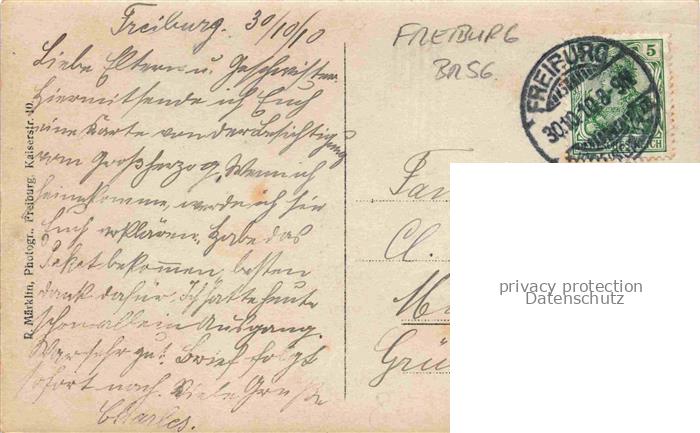 Freiburg. 30/10/10
Liebe Eltern u. Geschwister
Hiermit sende ich Euch
eine Karte von der Besichtigung
vom Großherzog, Wenn ich
heimkomme, werde ich sie
Euch erklären. Habe das
Paket bekommen, besten
dank dafür. Ich hatte heute
schon allein Ausgang.
War sehr gut. Brief folgt
sofort nach. Viele Grüße
Charles.
R. Märklin, Photogr., Freiburg, Kaiserstr. 40.
FREIBURG
BRSG.
FREIBURG
30.10.10.8-9N
5
Fam
Cl.
Grü
privacy protection
Datenschutz